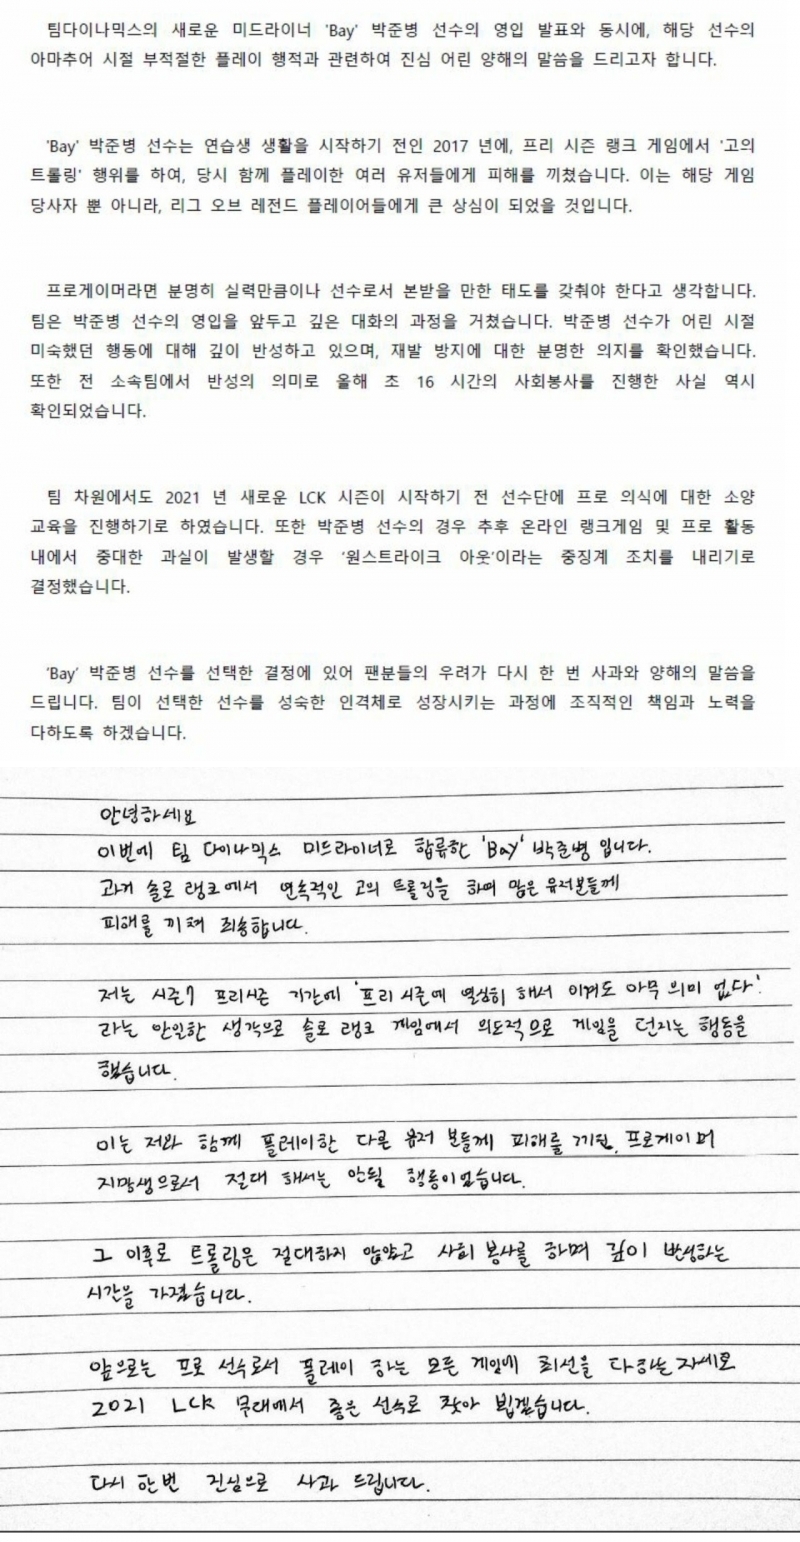 팀다이나믹스의 새로운 미드라이너 'Bay' 박준병 선수의 영입 발표와 동시에, 해당 선수의
아마추어 시절 부적절한 플레이 행적과 관련하여 진심 어린 양해의 말씀을 드리고자 합니다.
'Bay' 박준병 선수는 연습생 생활을 시작하기 전인 2017 년에, 프리 시즌 랭크 게임에서 '고의
트롤링' 행위를 하여, 당시 함께 플레이한 여러 유저들에게 피해를 끼쳤습니다. 이는 해당 게임
당사자 뿐 아니라, 리그 오브 레전드 플레이어들에게 큰 상심이 되었을 것입니다.
프로게이머라면 분명히 실력만큼이나 선수로서 본받을 만한 태도를 갖춰야 한다고 생각합니다.
팀은 박준병 선수의 영입을 앞두고 깊은 대화의 과정을 거쳤습니다. 박준병 선수가 어린 시절
미숙했던 행동에 대해 깊이 반성하고 있으며, 재발 방지에 대한 분명한 의지를 확인했습니다.
또한 전 소속팀에서 반성의 의미로 올해 초 16 시간의 사회봉사를 진행한 사실 역시
확인되었습니다.
팀 차원에서도 2021 년 새로운 LCK 시즌이 시작하기 전 선수단에 프로 의식에 대한 소양
교육을 진행하기로 하였습니다. 또한 박준병 선수의 경우 추후 온라인 랭크게임 및 프로 활동
내에서 중대한 과실이 발생할 경우 '원스트라이크 아웃'이라는 중징계 조치를 내리기로
결정했습니다.
'Bay' 박준병 선수를 선택한 결정에 있어 팬분들의 우려가 다시 한 번 사과와 양해의 말씀을
드립니다. 팀이 선택한 선수를 성숙한 인격체로 성장시키는 과정에 조직적인 책임과 노력을
다하도록 하겠습니다.
안녕하세요
이번에 팀 다이나믹스 미드라이너로 합류한 'Bay' 박준병 입니다.
과거 솔로 랭크에서 연속적인 고의 트롤링을 하여 많은 유저분들께
피해를 끼쳐 죄송합니다.
저는 시즌7 프리시즌 기간에 '프리시즌에 열심히 해서 이겨도 아무 의미 없다'
라는 안일한 생각으로 솔로 랭크 게임에서 의도적으로 게임을 던지는 행동을
했습니다.
이는 저와 함께 플레이한 다른 유저 분들께 피해를 끼친, 프로게이머
지망생으로서 절대 해서는 안될 행동이었습니다.
그 이후로 트롤링은 절대하지 않았고 사회 봉사를 하며 깊이 반성하는
시간을 가졌습니다.
앞으로는 프로 선수로서 플레이 하는 모든 게임에 최선을 다하는 자세로
2021 LCK 무대에서 좋은 선수로 찾아 뵙겠습니다.
다시 한번 진심으로 사과 드립니다.